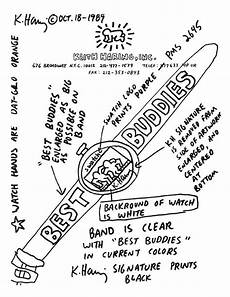 K. Haring © OCT. 18-1989
KEITH HARING, INC.
676 BROADWAY N.Y.C. 10012
FAX - 212-353-0893
PMS 2695
★ WATCH HANDS ARE DAY-GLO ORANGE
"BEST BUDDIES"
ENLARGED
AS BIG AS
POSSIBLE ON
BAND
WATCH LOGO
PRINTS PURPLE
BEST
BUDDIES
K. Haring
SIGNATURE
IS REMOVED FROM
SIDE OF ARTWORK
ENLARGED, AND
CENTERED
AT BOTTOM
BACKGROUND OF WATCH
IS WHITE
BAND IS CLEAR
WITH "BEST BUDDIES"
IN CURRENT COLORS
K. Haring SIGNATURE PRINTS
BLACK